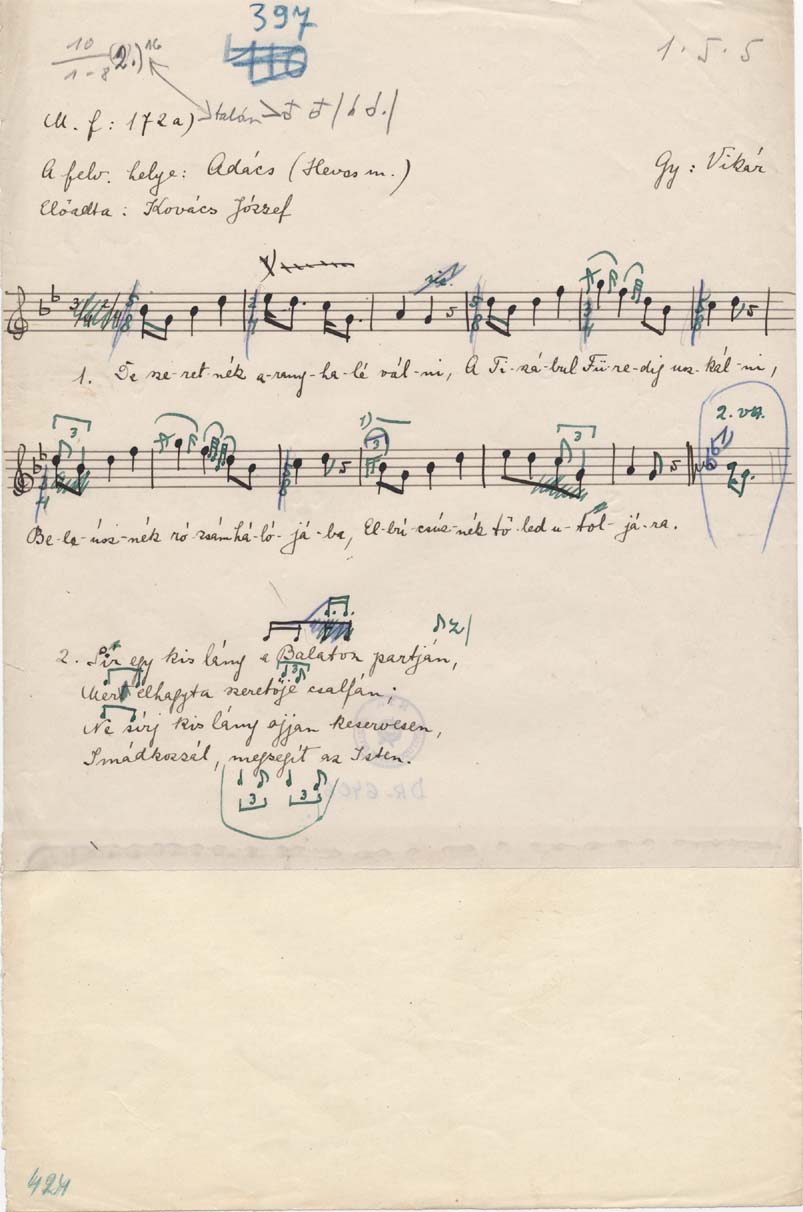 397
10
1-8 (2.) 16
1. 5. 5
M. f: 172a) talán
A felv. helye: Adács (Heves m.)
Gy: Vikár
Előadta: Kovács József
1. De sze-ret-nék a-rany-ha-lé vál-ni, A Ti-szá-bul Fü-re-dig usz-kál-ni,
2. vsz.
Be-le-úsz-nék ró-zsám há-ló-já-ba, El-bú-csúz-nék tő-led u-tól-já-ra.
2. Sír egy kis lány a Balaton partján,
Mert elhagyta szeretője csalfán;
Ne sírj kis lány ojjan keservesen,
Imádkozzál, megsegít az Isten.
424